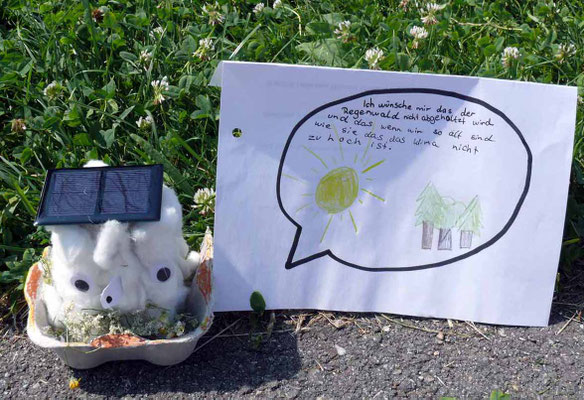 Ich wünsche mir das der
Regenwald nicht abgeholtzt wird
und das wenn wir so alt sind
wie sie das das klima nicht
zu hoch ist.